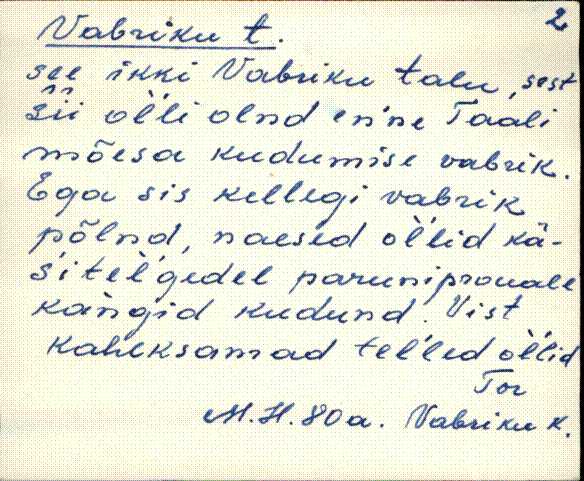 2
Vabriku t.
see ikki Vabriku talu, sest
sìì ol'li olnd en'ne Taali
mõesa kudumise vabrik.
Ega sis kellegi vabrik
põlnd, naesed ol'lid kä-
s'itel'gedel paruniprouale
kangid kudund. Vist
kaheksamad tel'led ol'lid
Tor
M.H. 80a. Vabriku k.